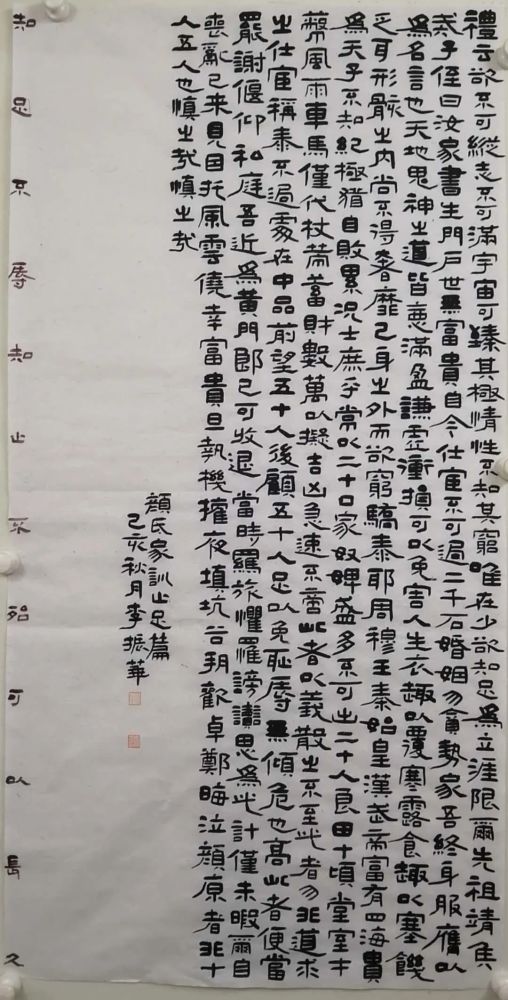 禮云欲不可縱志不可滿宇宙可臻其極情性不知其窮唯在少欲知足為立涯限爾先祖靖侯
戒子侄曰汝家書生門戶世無富貴自今仕宦不可過二千石婚姻勿貪勢家吾終身服膺以
為名言也天地鬼神之道皆惡滿盈謙虛衝損可以免害人生衣趣以覆寒露食趣以塞饑
乏耳形骸之內尚不得奢靡己身之外而欲窮驕泰耶周穆王秦始皇漢武帝富有四海貴
為天子不知紀極猶自敗累況士庶乎常以二十口家奴婢盛多不可出二十人良田十頃堂室才
蔽風雨車馬僅代杖策蓄財數萬以擬吉凶急速不啻此者以義散之不至此者勿非道求
之仕宦稱泰不過處在中品前望五十人後顧五十人足以免恥辱無傾危也高此者便當
罷謝偃仰私庭吾近為黃門郎已可收退當時羈旅懼罹謗讟思為此計僅未暇爾自
喪亂已來見因托風雲僥幸富貴旦執機權夜填坑谷朔歡卓鄭晦泣顏原者非十
人五人也慎之哉慎之哉
顏氏家訓止足篇
己亥秋月李振華
知足不辱知止不殆可以長久